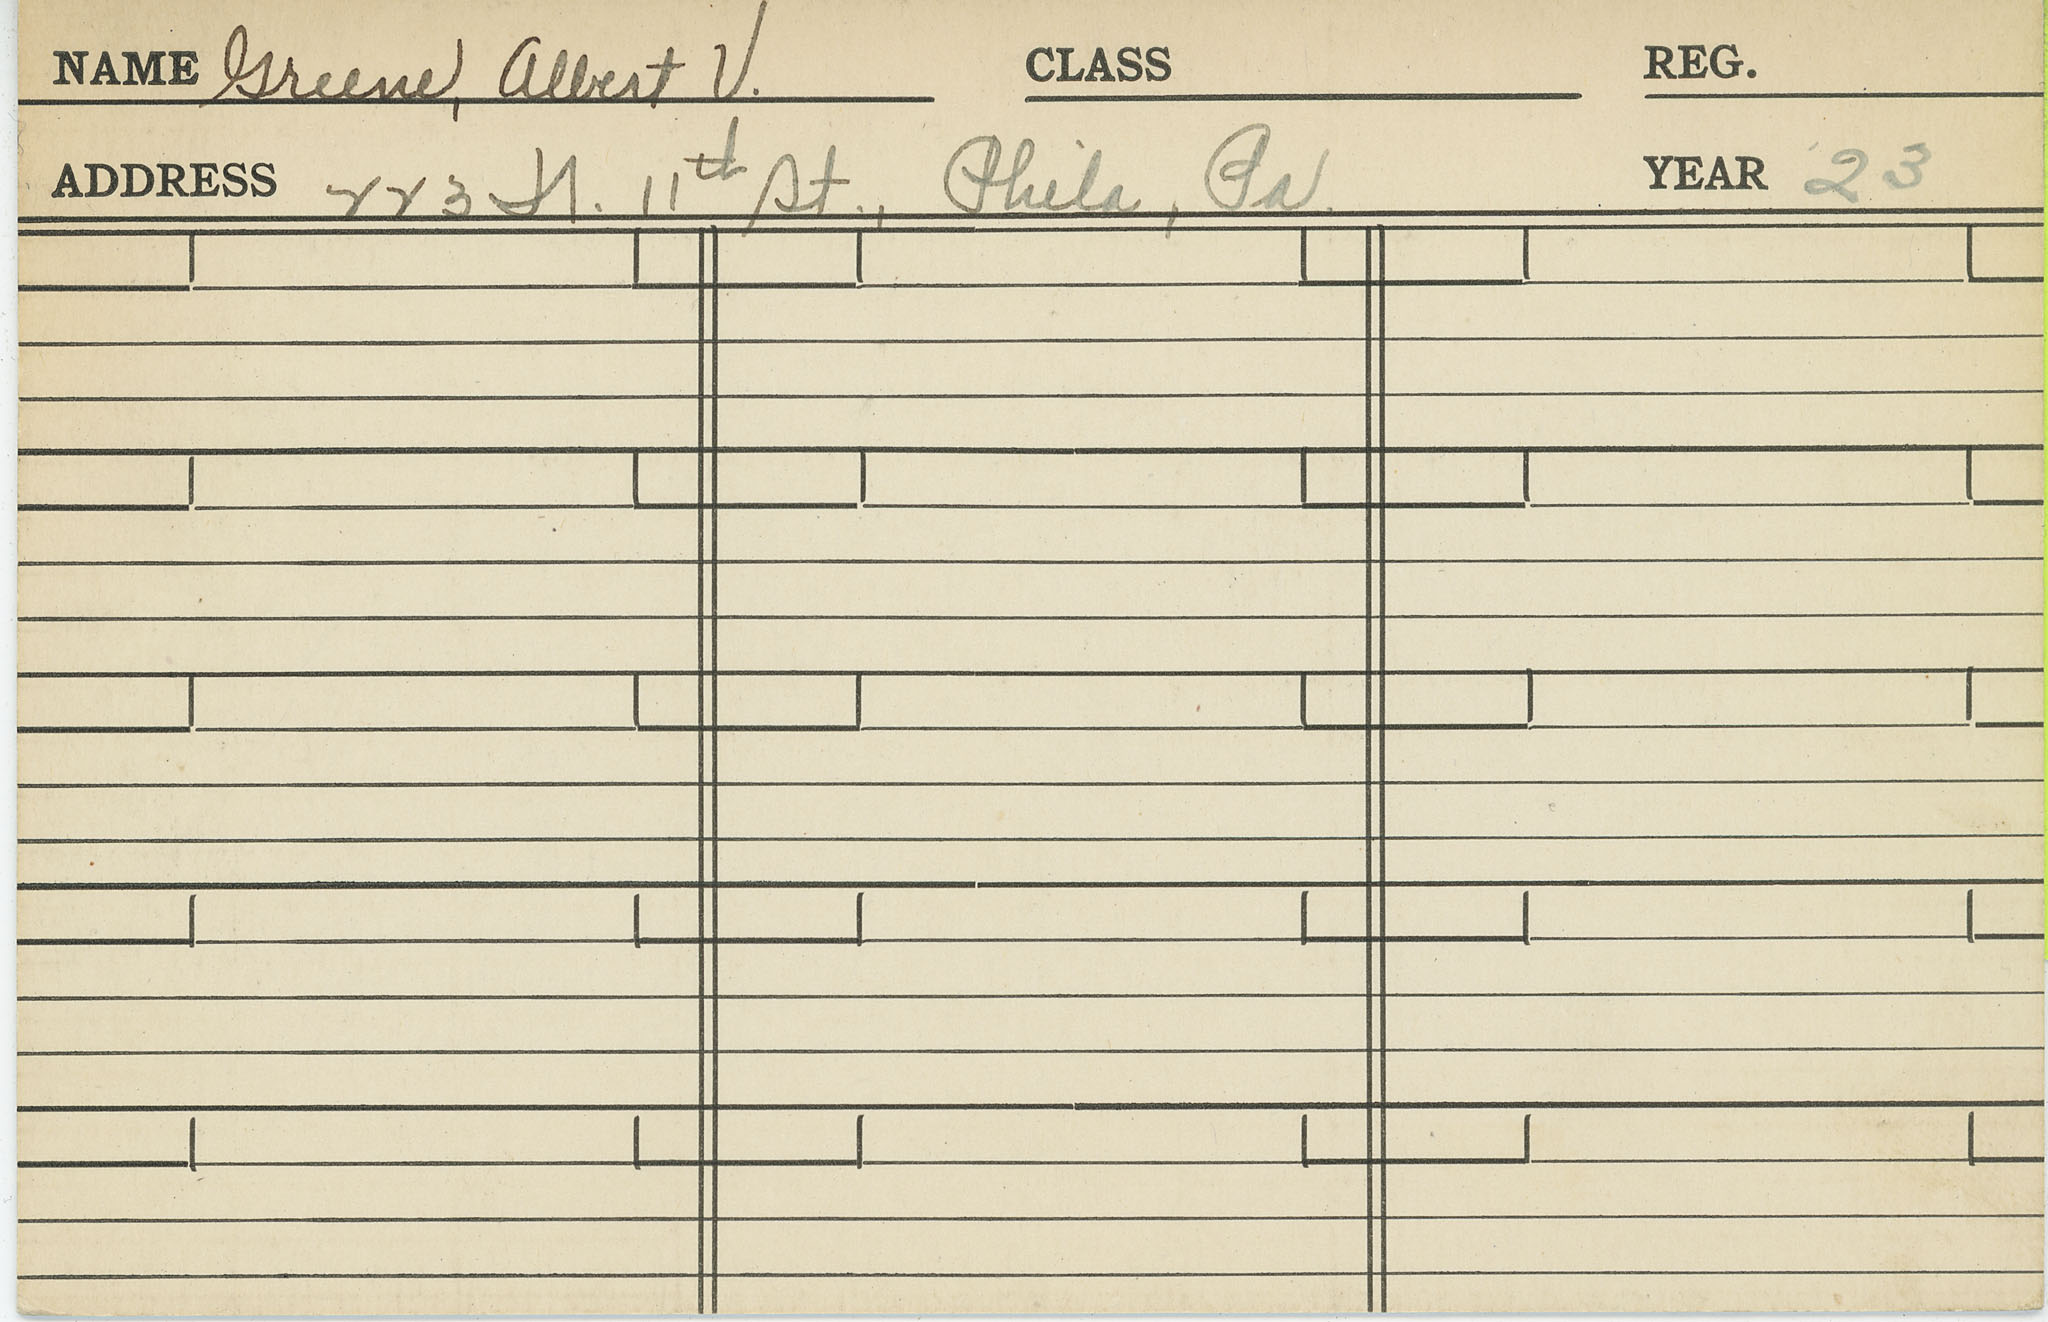 NAME Greene, Albert V. CLASS REG.
ADDRESS 223 N. 11th St., Phila, Pa. YEAR 23